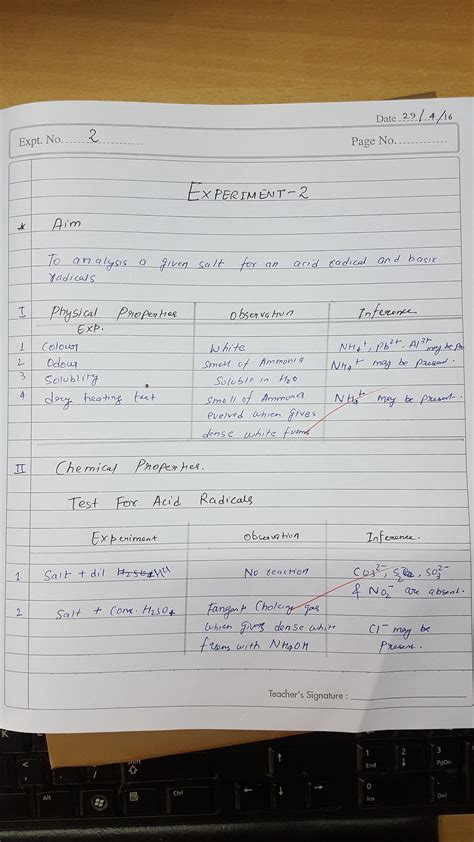 Date 29/4/16
Expt. No. 2 Page No.
EXPERIMENT-2
* Aim
To analysis a given salt for an acid radical and basic
radicals
I Physical Properties Observation Inference
Exp.
1 Colour White NH4+, Pb2+, Al3+ may be po
2 Odour Smell of Ammonia NH4+ may be present.
3 Solublity Soluble in H2O
4 dry heating test Smell of Ammona NH4+ may be present
evolved which gives
dense white fums
II Chemical Properties.
Test For Acid Radicals
Experiment Observation Inference.
1. Salt + dil No reaction CO3 2-, SO3 2-
& NO2- are absent.
2 Salt + Conc. H2SO4 Fangent Choking gas
which gives dense white Cl- may be
fums with NH4OH Present.
Teacher's Signature :
Shift
Alt
Ctrl
1
End
2
3
PgDn
0
Ins
Del